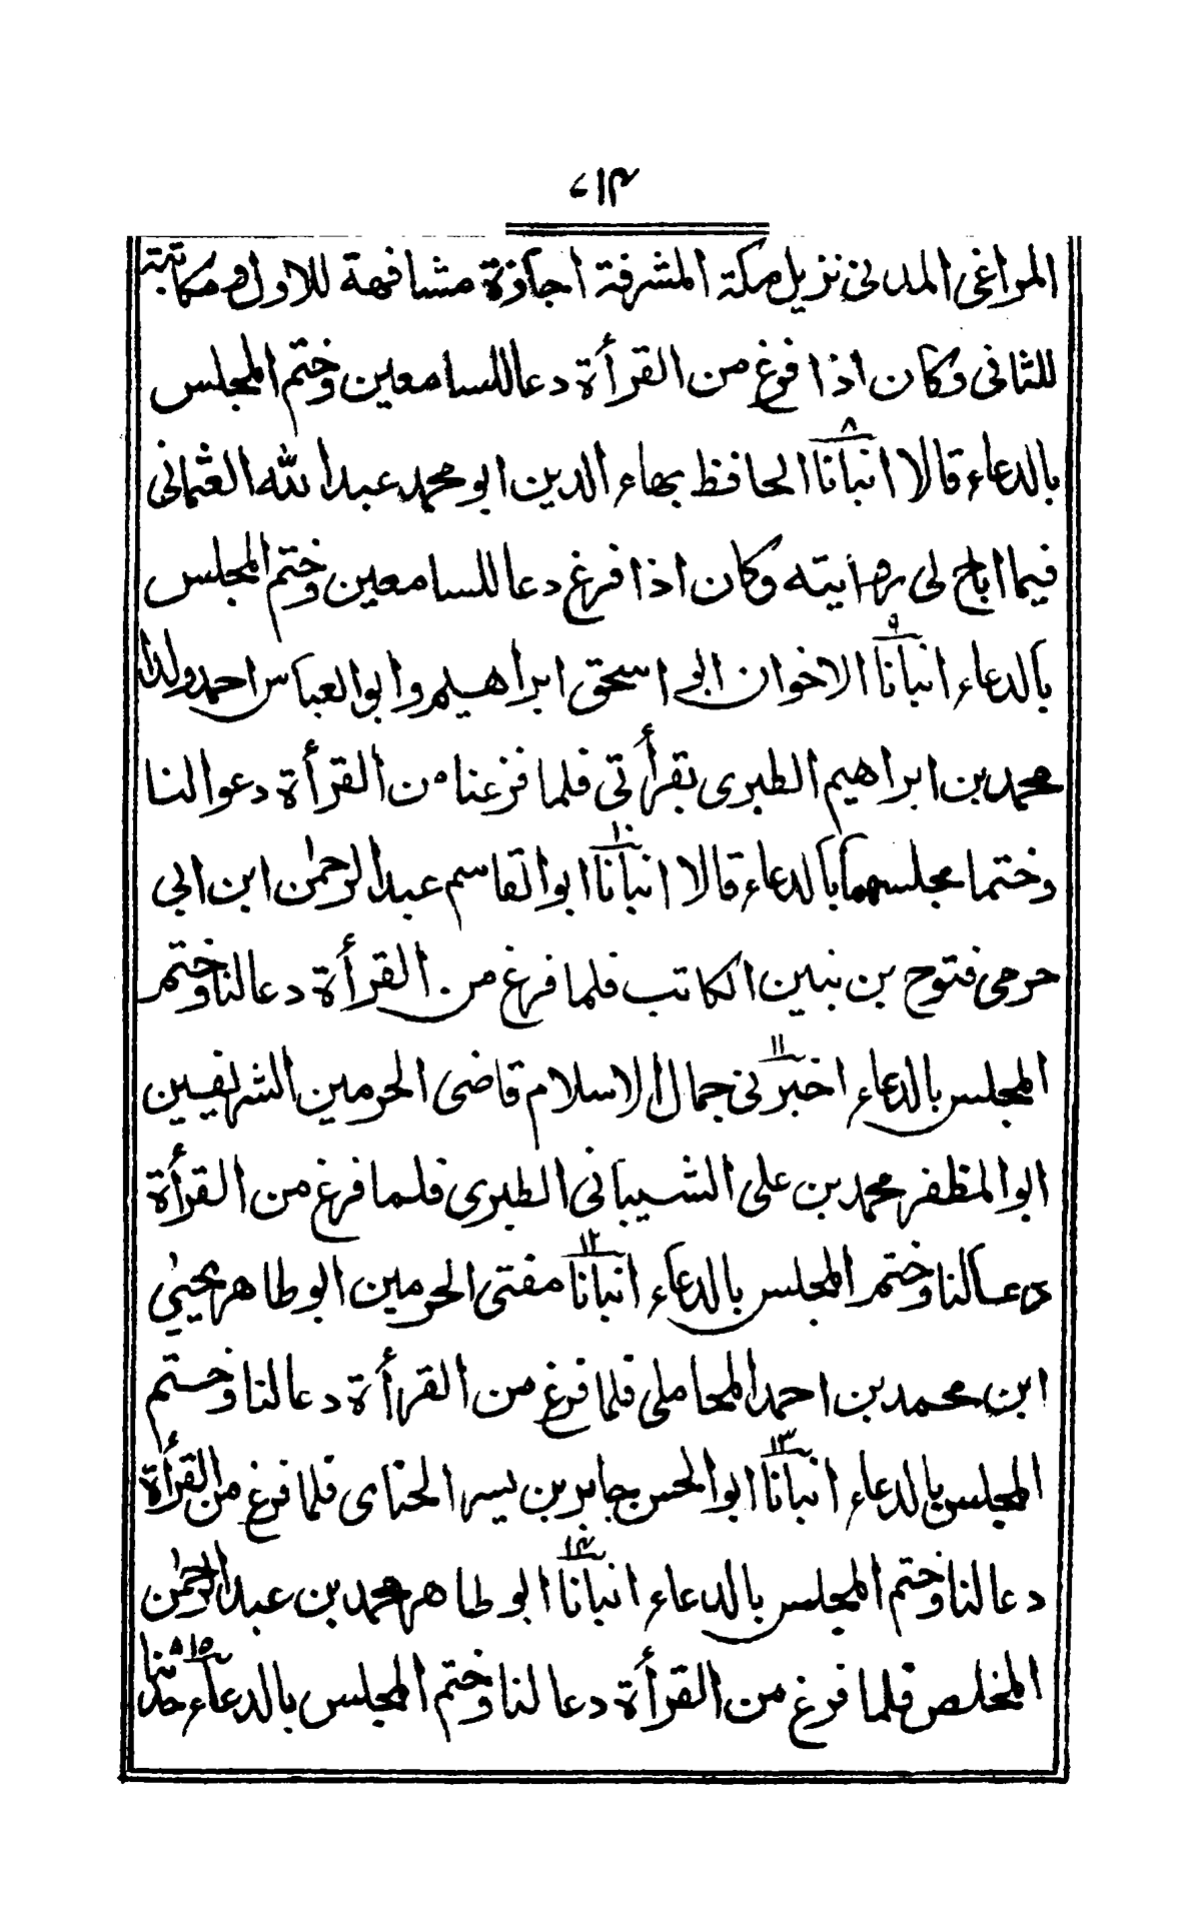 ۱۴
المراغى المدنى نزيل مكة المشرفة اجازة مشافهة للاول ومكاتبة
للثانى وكان اذا فرغ من القرأة دعا للسامعين وختم المجلس
بالدعاء قالا انبانا ۸ الحافظ بهاء الدين ابو محمد عبد الله العثمانى
فيما اباح لى روايته وكان اذا فرغ دعا للسامعين وختم المجلس
بالدعاء انبانا ۹ الاخوان ابو اسحق ابراهيم وابو العباس احمد ولدا
محمد بن ابراهيم الطبرى بقرأتى فلما فرغنا من القرأة دعوا لنا
وختما مجلسهما بالدعاء قالا انبانا ۱۰ ابو القاسم عبد الرحمٰن ابن ابي
حرمى فتوح بن بنين الكاتب فلما فرغ من القرأة دعا لنا وختم
المجلس بالدعاء اخبرنى ۱۱ جمال الاسلام قاضى الحرمين الشريفين
ابو المظفر محمد بن على الشيبانى الطبرى فلما فرغ من القرأة
دعا لنا وختم المجلس بالدعاء انبانا ۱۲ مفتى الحرمين ابو طاهر يحيىٰ
ابن محمد بن احمد المحاملى فلما فرغ من القرأة دعا لنا وختم
المجلس بالدعاء انبانا ۱۳ ابو الحسن جابر بن يسر الحنائى فلما فرغ من القرأة
دعا لنا وختم المجلس بالدعاء انبانا ۱۴ ابو طاهر محمد بن عبد الرحمٰن
المخلص فلما فرغ من القرأة دعا لنا وختم المجلس بالدعاء ۱۵ حدثنا